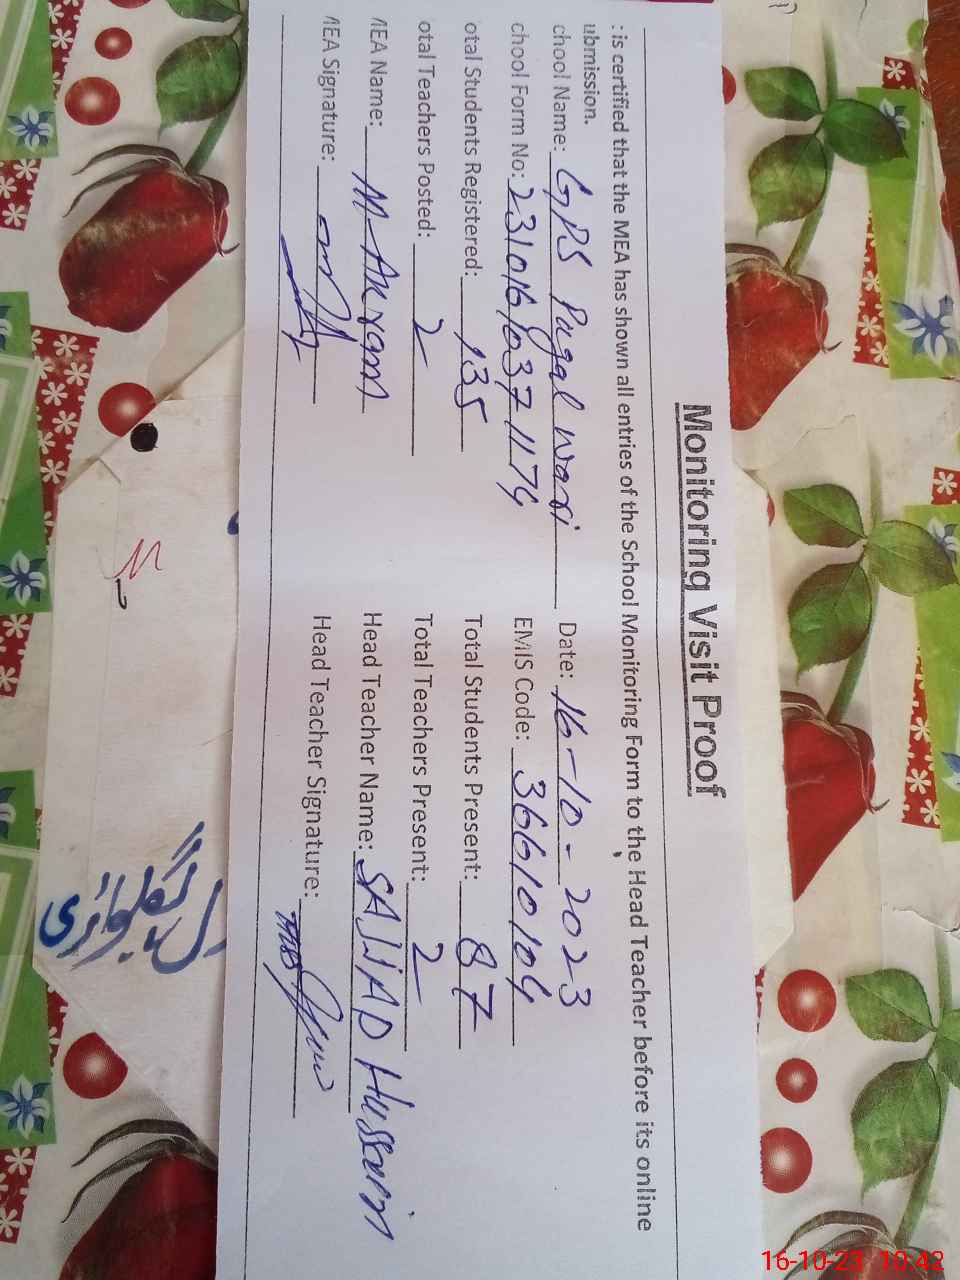 Monitoring Visit Proof
: is certified that the MEA has shown all entries of the School Monitoring Form to the Head Teacher before its online
ubmission.
chool Name: GPS Pugal Wari Date: 16-10-2023
chool Form No: 231016/037 1174 EMIS Code: 36610104
otal Students Registered: 135 Total Students Present: 87
otal Teachers Posted: 2 Total Teachers Present: 2
MEA Name: M-Akram Head Teacher Name: SAJJAD Hussain
MEA Signature: Head Teacher Signature:
16-10-23 10:42